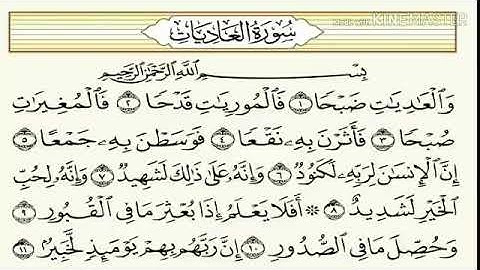 سُورَةُ العَادِيَاتِ
MADE WITH KINEMASTER
بِسْمِ اللَّهِ الرَّحْمَٰنِ الرَّحِيمِ
وَالْعَادِيَاتِ ضَبْحًا ١ فَالْمُورِيَاتِ قَدْحًا ٢ فَالْمُغِيرَاتِ
صُبْحًا ٣ فَأَثَرْنَ بِهِ نَقْعًا ٤ فَوَسَطْنَ بِهِ جَمْعًا ٥
إِنَّ الْإِنْسَانَ لِرَبِّهِ لَكَنُودٌ ٦ وَإِنَّهُ عَلَىٰ ذَالِكَ لَشَهِيدٌ ٧ وَإِنَّهُ لِحُبِّ
الْخَيْرِ لَشَدِيدٌ ٨ ۞ أَفَلَا يَعْلَمُ إِذَا بُعْثِرَ مَا فِي الْقُبُورِ ٩
وَحُصِّلَ مَا فِي الصُّدُورِ ١٠ إِنَّ رَبَّهُم بِهِمْ يَوْمَئِذٍ لَّخَبِيرٌ ١١